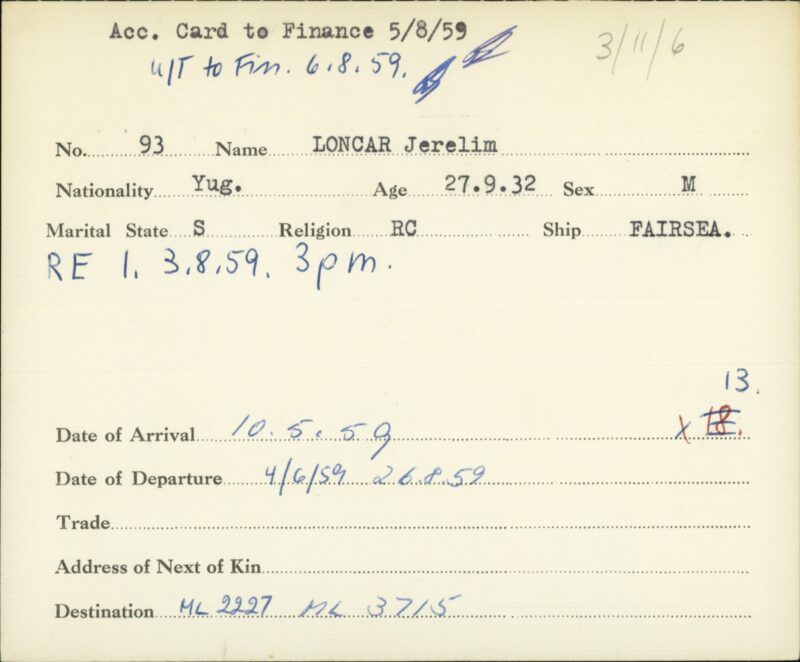 Acc. Card to Finance 5/8/59
u/T to Fin. 6.8.59.
3/11/6
No. 93 Name LONCAR Jerelim
Nationality Yug. Age 27.9.32 Sex M
Marital State S Religion RC Ship FAIRSEA.
RE 1. 3.8.59. 3pm.
13.
Date of Arrival 10.5.59 x 18.
Date of Departure 4/6/59 26.8.59
Trade
Address of Next of Kin
Destination ML 2227 ML 3715